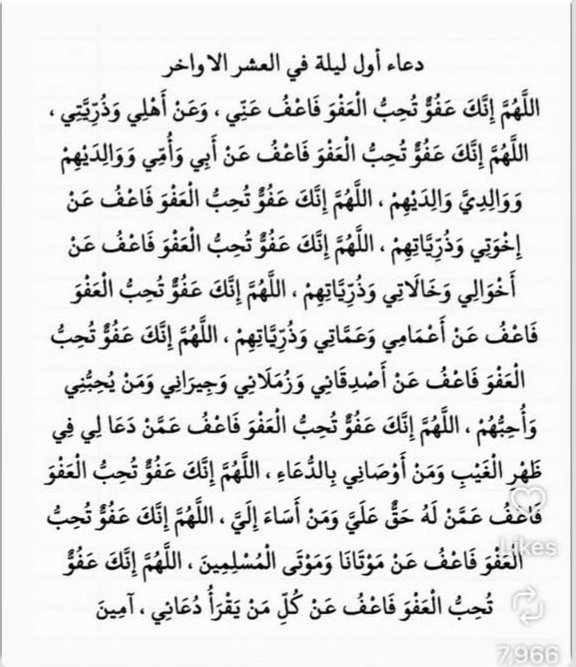 دعاء أول ليلة في العشر الاواخر
اللَّهُمَّ إِنَّكَ عَفُوٌّ تُحِبُّ الْعَفْوَ فَاعْفُ عَنِّي ، وَعَنْ أَهْلِي وَذُرِّيَّتِي ،
اللَّهُمَّ إِنَّكَ عَفُوٌّ تُحِبُّ الْعَفْوَ فَاعْفُ عَنْ أَبِي وَأُمِّي وَوَالِدَيْهِمْ
وَوَالِدِيَّ وَالِدَيْهِمْ ، اللَّهُمَّ إِنَّكَ عَفُوٌّ تُحِبُّ الْعَفْوَ فَاعْفُ عَنْ
إِخْوَتِي وَذُرِّيَّاتِهِمْ ، اللَّهُمَّ إِنَّكَ عَفُوٌّ تُحِبُّ الْعَفْوَ فَاعْفُ عَنْ
أَخْوَالِي وَخَالَاتِي وَذُرِّيَّاتِهِمْ ، اللَّهُمَّ إِنَّكَ عَفُوٌّ تُحِبُّ الْعَفْوَ
فَاعْفُ عَنْ أَعْمَامِي وَعَمَّاتِي وَذُرِّيَّاتِهِمْ ، اللَّهُمَّ إِنَّكَ عَفُوٌّ تُحِبُّ
الْعَفْوَ فَاعْفُ عَنْ أَصْدِقَائِي وَزُمَلَائِي وَجِيرَانِي وَمَنْ يُحِبُّنِي
وَأُحِبُّهُمْ ، اللَّهُمَّ إِنَّكَ عَفُوٌّ تُحِبُّ الْعَفْوَ فَاعْفُ عَمَّنْ دَعَا لِي فِي
ظَهْرِ الْغَيْبِ وَمَنْ أَوْصَانِي بِالدُّعَاءِ ، اللَّهُمَّ إِنَّكَ عَفُوٌّ تُحِبُّ الْعَفْوَ
فَاعْفُ عَمَّنْ لَهُ حَقٌّ عَلَيَّ وَمَنْ أَسَاءَ إِلَيَّ ، اللَّهُمَّ إِنَّكَ عَفُوٌّ تُحِبُّ
الْعَفْوَ فَاعْفُ عَنْ مَوْتَانَا وَمَوْتَى الْمُسْلِمِينَ ، اللَّهُمَّ إِنَّكَ عَفُوٌّ
تُحِبُّ الْعَفْوَ فَاعْفُ عَنْ كُلِّ مَنْ يَقْرَأُ دُعَائِي ، آمِينَ
Likes
7,966